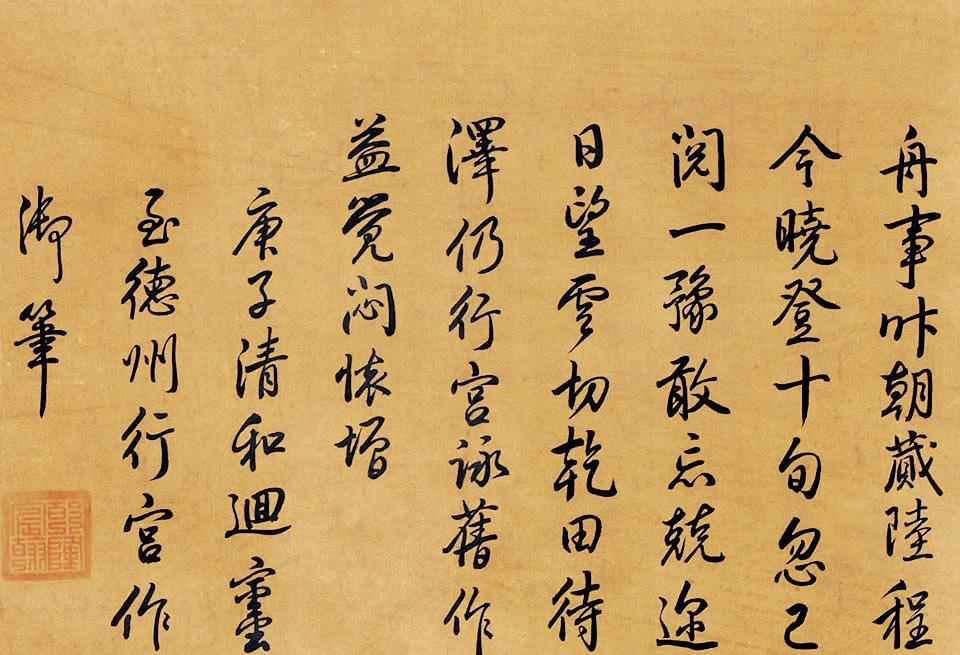 舟事昨朝蕆陸程
今曉登十旬忽已
閱一豫敢忘兢迩
日望雲切乾田待
澤仍行宮詠舊作
益覺悶懷增
庚子清和迴鑾
至德州行宮作
御筆
乾隆
宸翰